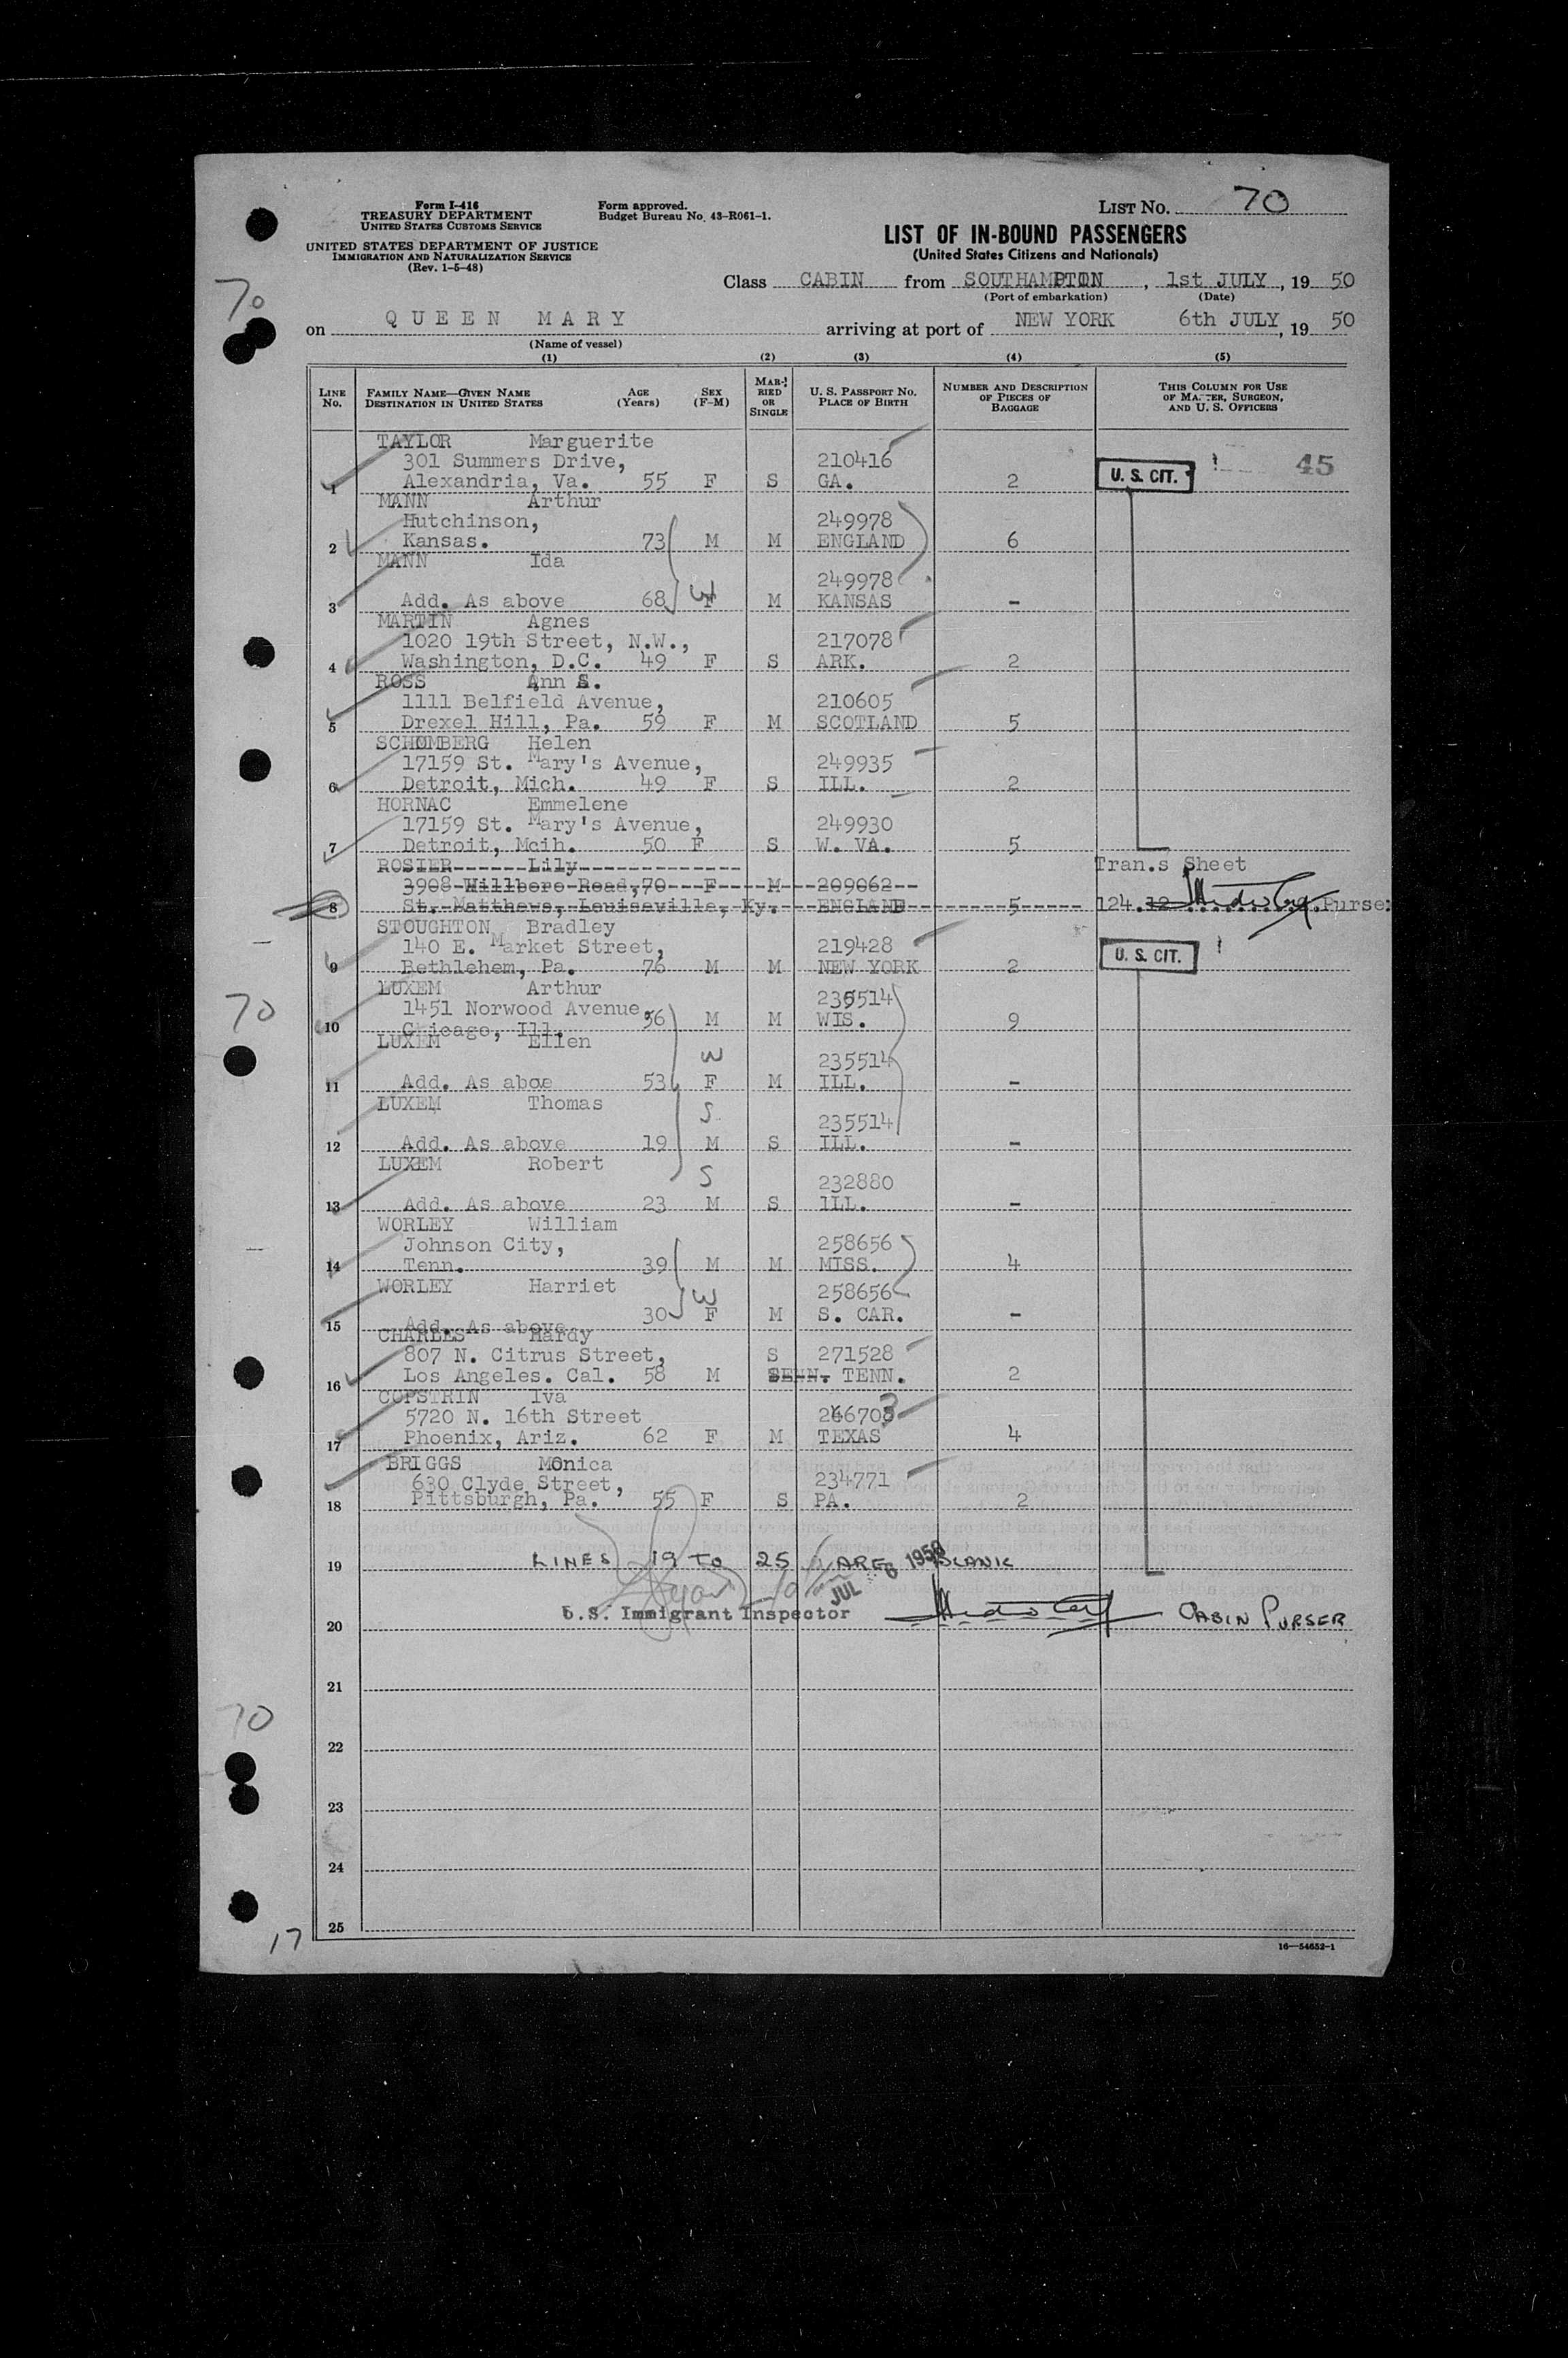 Form I-416
TREASURY DEPARTMENT
UNITED STATES CUSTOMS SERVICE
UNITED STATES DEPARTMENT OF JUSTICE
IMMIGRATION AND NATURALIZATION SERVICE
(Rev. 1-5-48)
Form approved.
Budget Bureau No. 43-R061-1.
LIST NO. 70
LIST OF IN-BOUND PASSENGERS
(United States Citizens and Nationals)
Class CABIN from SOUTHAMPTON, 1st JULY, 19 50
(Port of embarkation) (Date)
70
on QUEEN MARY arriving at port of NEW YORK 6th JULY, 19 50
(Name of vessel)
(1) (2) (3) (4) (5)
LINE NO.
FAMILY NAME—GIVEN NAME
DESTINATION IN UNITED STATES
AGE (Years)
SEX (F-M)
MARRIED OR SINGLE
U. S. PASSPORT NO.
PLACE OF BIRTH
NUMBER AND DESCRIPTION OF PIECES OF BAGGAGE
THIS COLUMN FOR USE OF MASTER, SURGEON, AND U. S. OFFICERS
TAYLOR Marguerite
301 Summers Drive, 210416
1 Alexandria, Va. 55 F S GA. 2 U. S. CIT. 45
MANN Arthur
Hutchinson, 249978
2 Kansas. 73 M M ENGLAND 6
MANN Ida
249978
3 Add. As above 68 W F M KANSAS -
MARTIN Agnes
1020 19th Street, N.W., 217078
4 Washington, D.C. 49 F S ARK. 2
ROSS Ann S.
1111 Belfield Avenue, 210605
5 Drexel Hill, Pa. 59 F M SCOTLAND 5
SCHOMBERG Helen
17159 St. Mary's Avenue, 249935
6 Detroit, Mich. 49 F S ILL. 2
HORNAC Emmelene
17159 St. Mary's Avenue, 249930
7 Detroit, Mcih. 50 F S W. VA. 5
ROSIER Lily Tran.s Sheet
3908 Hillboro Road, 70 F M 209062
8 St. Matthews, Louiseville, Ky. ENGLAND 5 124. 32 Purser
STOUGHTON Bradley
140 E. Market Street, 219428
9 Bethlehem, Pa. 76 M M NEW YORK 2 U. S. CIT.
LUXEM Arthur
70
1451 Norwood Avenue, 235514
10 Chicago, Ill. 56 M M WIS. 9
LUXEM Ellen
W 235514
11 Add. As aboe 53 F M ILL. -
LUXEM Thomas
S 235514
12 Add. As above 19 M S ILL. -
LUXEM Robert
S 232880
13 Add. As above 23 M S ILL. -
WORLEY William
Johnson City, 258656
14 Tenn. 39 M M MISS. 4
WORLEY Harriet
W 258656
15 Add. As above 30 F M S. CAR. -
CHARLES Hardy
807 N. Citrus Street, S 271528
16 Los Angeles. Cal. 58 M TENN. 2
COPSTRIN Iva
5720 N. 16th Street 266703
17 Phoenix, Ariz. 62 F M TEXAS 4
BRIGGS Monica
630 Clyde Street, 234771
18 Pittsburgh, Pa. 55 F S PA. 2
19 LINES 19 TO 25 ARE BLANK
JUL 6 1950
20 U.S. Immigrant Inspector CABIN PURSER
21
70
22
23
24
25
17
16—54652-1